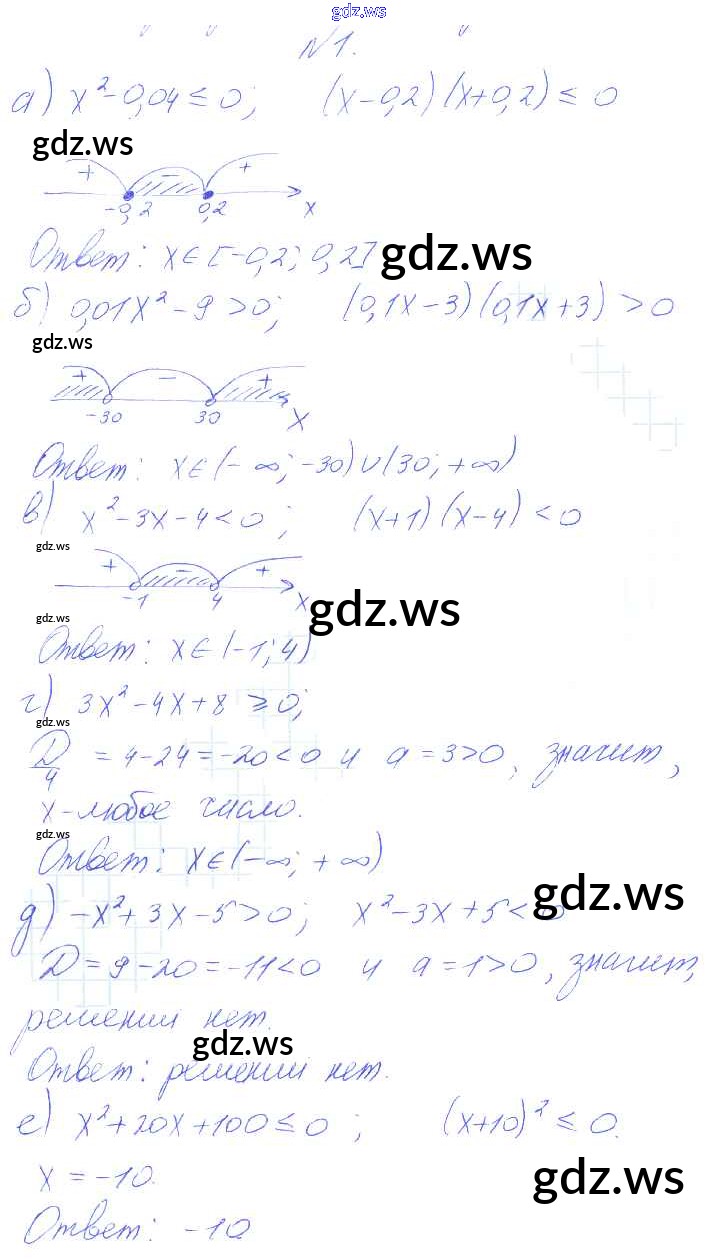 gdz.ws
N1.
а) x²-0,04≤0; (x-0,2)(x+0,2)≤0
gdz.ws
+ - +
-0,2 0,2 x
Ответ: x∈[-0,2; 0,2] gdz.ws
б) 0,01x²-9>0; (0,1x-3)(0,1x+3)>0
gdz.ws
+ - +
-30 30 x
Ответ: x∈(-∞; -30)∪(30; +∞)
в) x²-3x-4<0; (x+1)(x-4)<0
gdz.ws
+ - +
-1 4 x gdz.ws
gdz.ws
Ответ: x∈(-1; 4)
г) 3x²-4x+8≥0;
gdz.ws
D/4 =4-24=-20<0 и a=3>0, значит,
x-любое число.
gdz.ws
Ответ: x∈(-∞; +∞)
gdz.ws
д) -x²+3x-5>0; x²-3x+5<0
D=9-20=-11<0 и a=1>0, значит,
решений нет.
gdz.ws
Ответ: решений нет.
е) x²+20x+100≤0; (x+10)²≤0.
x=-10.
gdz.ws
Ответ: -10